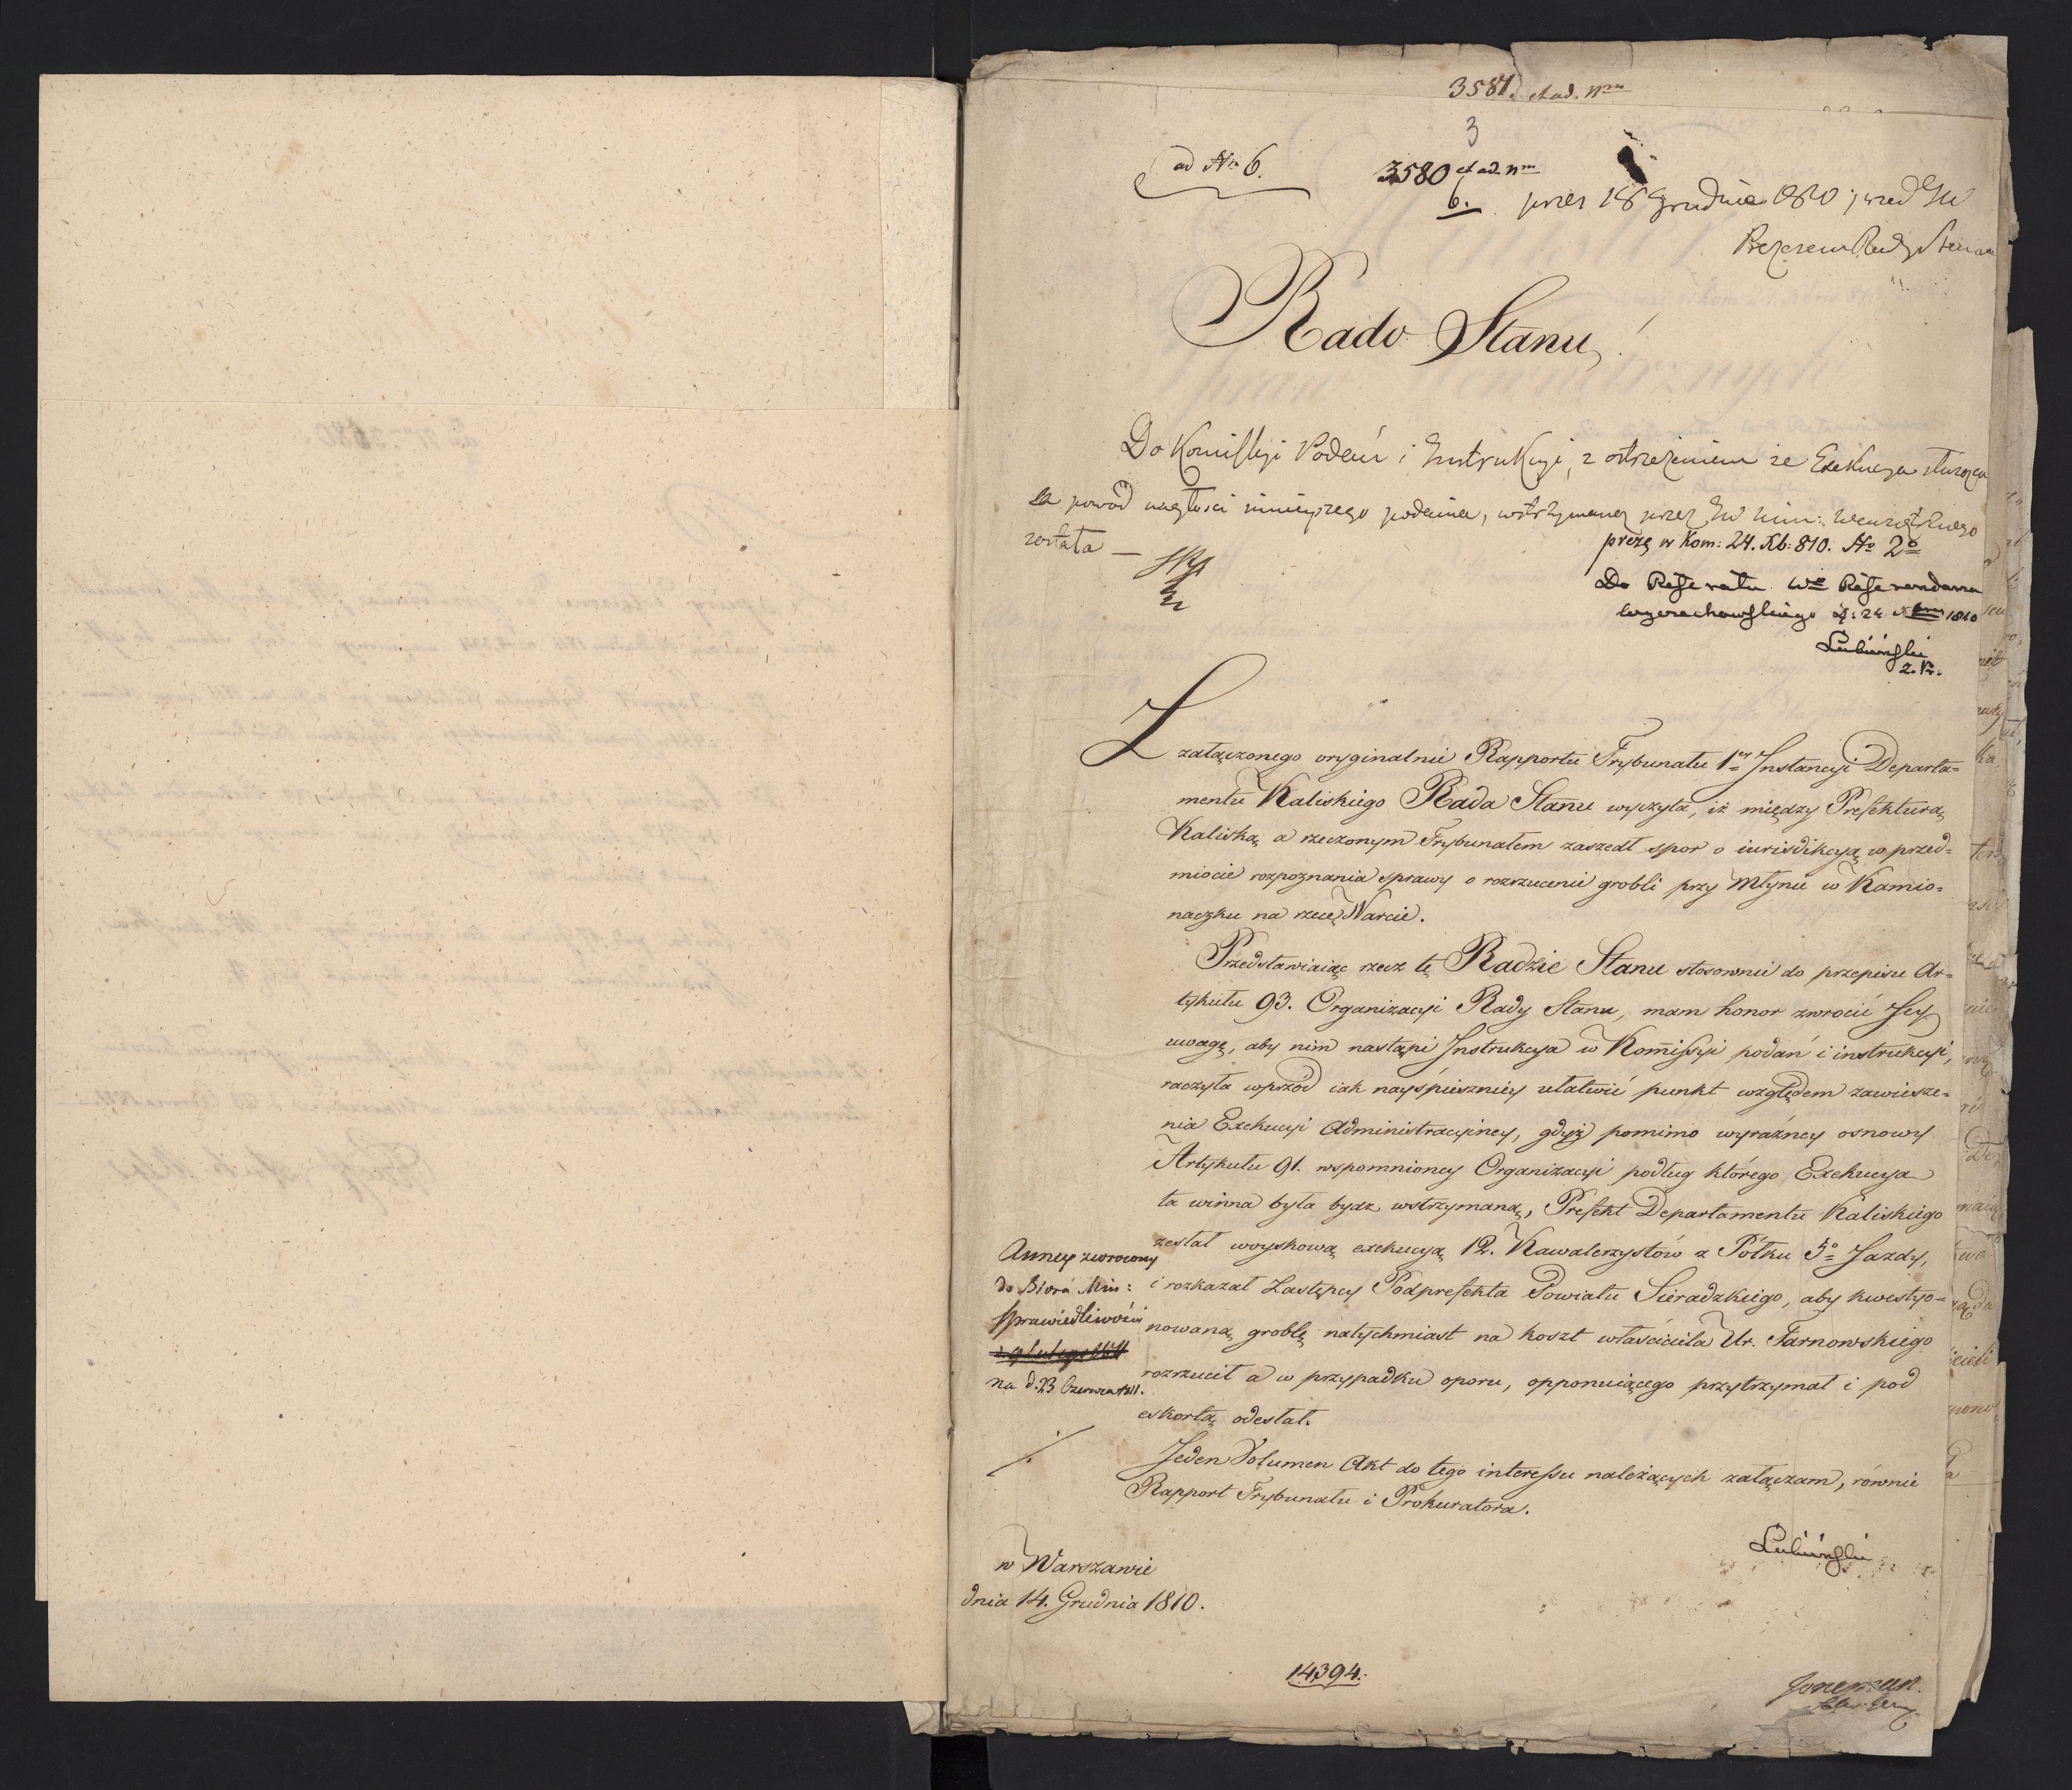 3581. et ad. Nrm
3
ad Nr 6.
3580 et ad. Nrm
6. prez 18 Grudnia 1810 przed JW
Prezesem Rady Stanu
Rado Stanu,
Do Kommissyi Podań i Instrukcyi, z ostrzeżeniem że Exekucya służąca
za powód nagłości ninieyszego podania, wstrzymaną przez JW Min: Wewnętrznego
została —
preżę w Kom: 24. Xb: 810. No 2o
Do Referatu Wo Referendarza
Wyczechowskiego d: 24 Xbris 1810
Lubieński
Z załączonego oryginalnie Rapportu Trybunału 1ey Instancyi Departa=
mentu Kaliskiego Rada Stanu wyczyta, iż między Prefekturą
Kaliską a rzeczonym Trybunałem zaszedł spor o iurisdikcyą w przed=
miocie rozpoznania sprawy o rozrzucenie grobli przy Młynie w Kamio=
naczku na rzecę Warcie.
Przedstawiaiąc rzecz tę Radzie Stanu stosownie do przepisu Ar=
tykułu 93. Organizacyi Rady Stanu, mam honor zwrócić Jey
uwagę, aby nim nastąpi Instrukcya w Kom̄issyi podań i instrukcyi,
raczyła wprzód iak nayśpieszniey ułatwić punkt względem zawiesze=
nia Exekucyi Administracyiney, gdyż pomimo wyraźney osnowy
Artykułu 91. wspomnioney Organizacyi podług którego Exekucya
ta winna była bydz wstrzymaną, Prefekt Departamentu Kaliskiego
zesłał woyskową exekucyą 12. Kawalerzystów z Połku 5o Jazdy,
i rozkazał Zastępcy Podprefekta Powiatu Sieradzkiego, aby kwestyo=
nowaną groblę natychmiast na koszt właściciela Ur. Tarnowskiego
rozrzucił a w przypadku oporu, opponuiącego przytrzymał i pod
eskortą odesłał.
Annex zwrocony
do Biora Min:
Sprawiedliwości
d. 9 Lutego 1811
na d. 23 Czerwca 1811.
Jeden Volumen Akt do tego interessu należących załączam, równie
Rapport Trybunału i Prokuratora.
Lubieński
w Warszawie
dnia 14. Grudnia 1810.
14394.